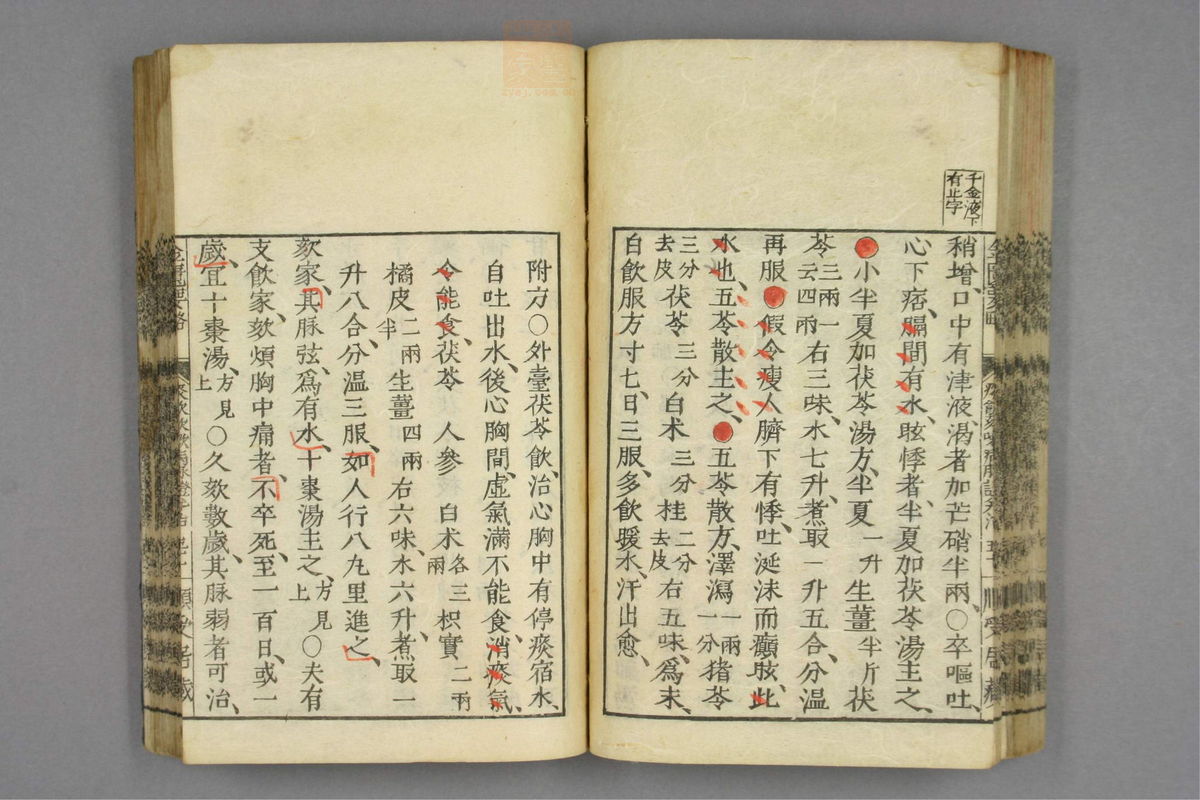 千金液下
有止字
稍增、口中有津液、渴者加芒硝半兩、〇卒嘔吐、
心下痞、膈間有水、眩悸者、半夏加茯苓湯主之、
小半夏加茯苓湯方、半夏一升生薑半斤茯
苓三兩一云四兩右三味、水七升、煮取一升五合、分温
再服、假令瘦人臍下有悸、吐涎沫而癲眩、此
水也、五苓散主之、五苓散方、澤瀉一兩一分猪苓
三分去皮茯苓三分白朮三分桂二分去皮右五味、爲末、
白飲服方寸匕、日三服、多飲暖水、汗出愈、
附方〇外臺茯苓飲、治心胸中有停痰宿水、
自吐出水、後心胸間、虛氣滿不能食、消痰氣、
令能食、茯苓 人參 白朮各三兩枳實二兩
橘皮二兩半生薑四兩右六味、水六升、煮取一
升八合、分温三服、如人行八九里進之、
欬家、其脉弦、爲有水、十棗湯主之、方見上〇夫有
支飲家、欬煩胸中痛者、不卒死、至一百日、或一
歲、宜十棗湯、方見上〇久欬數歲、其脉弱者可治、